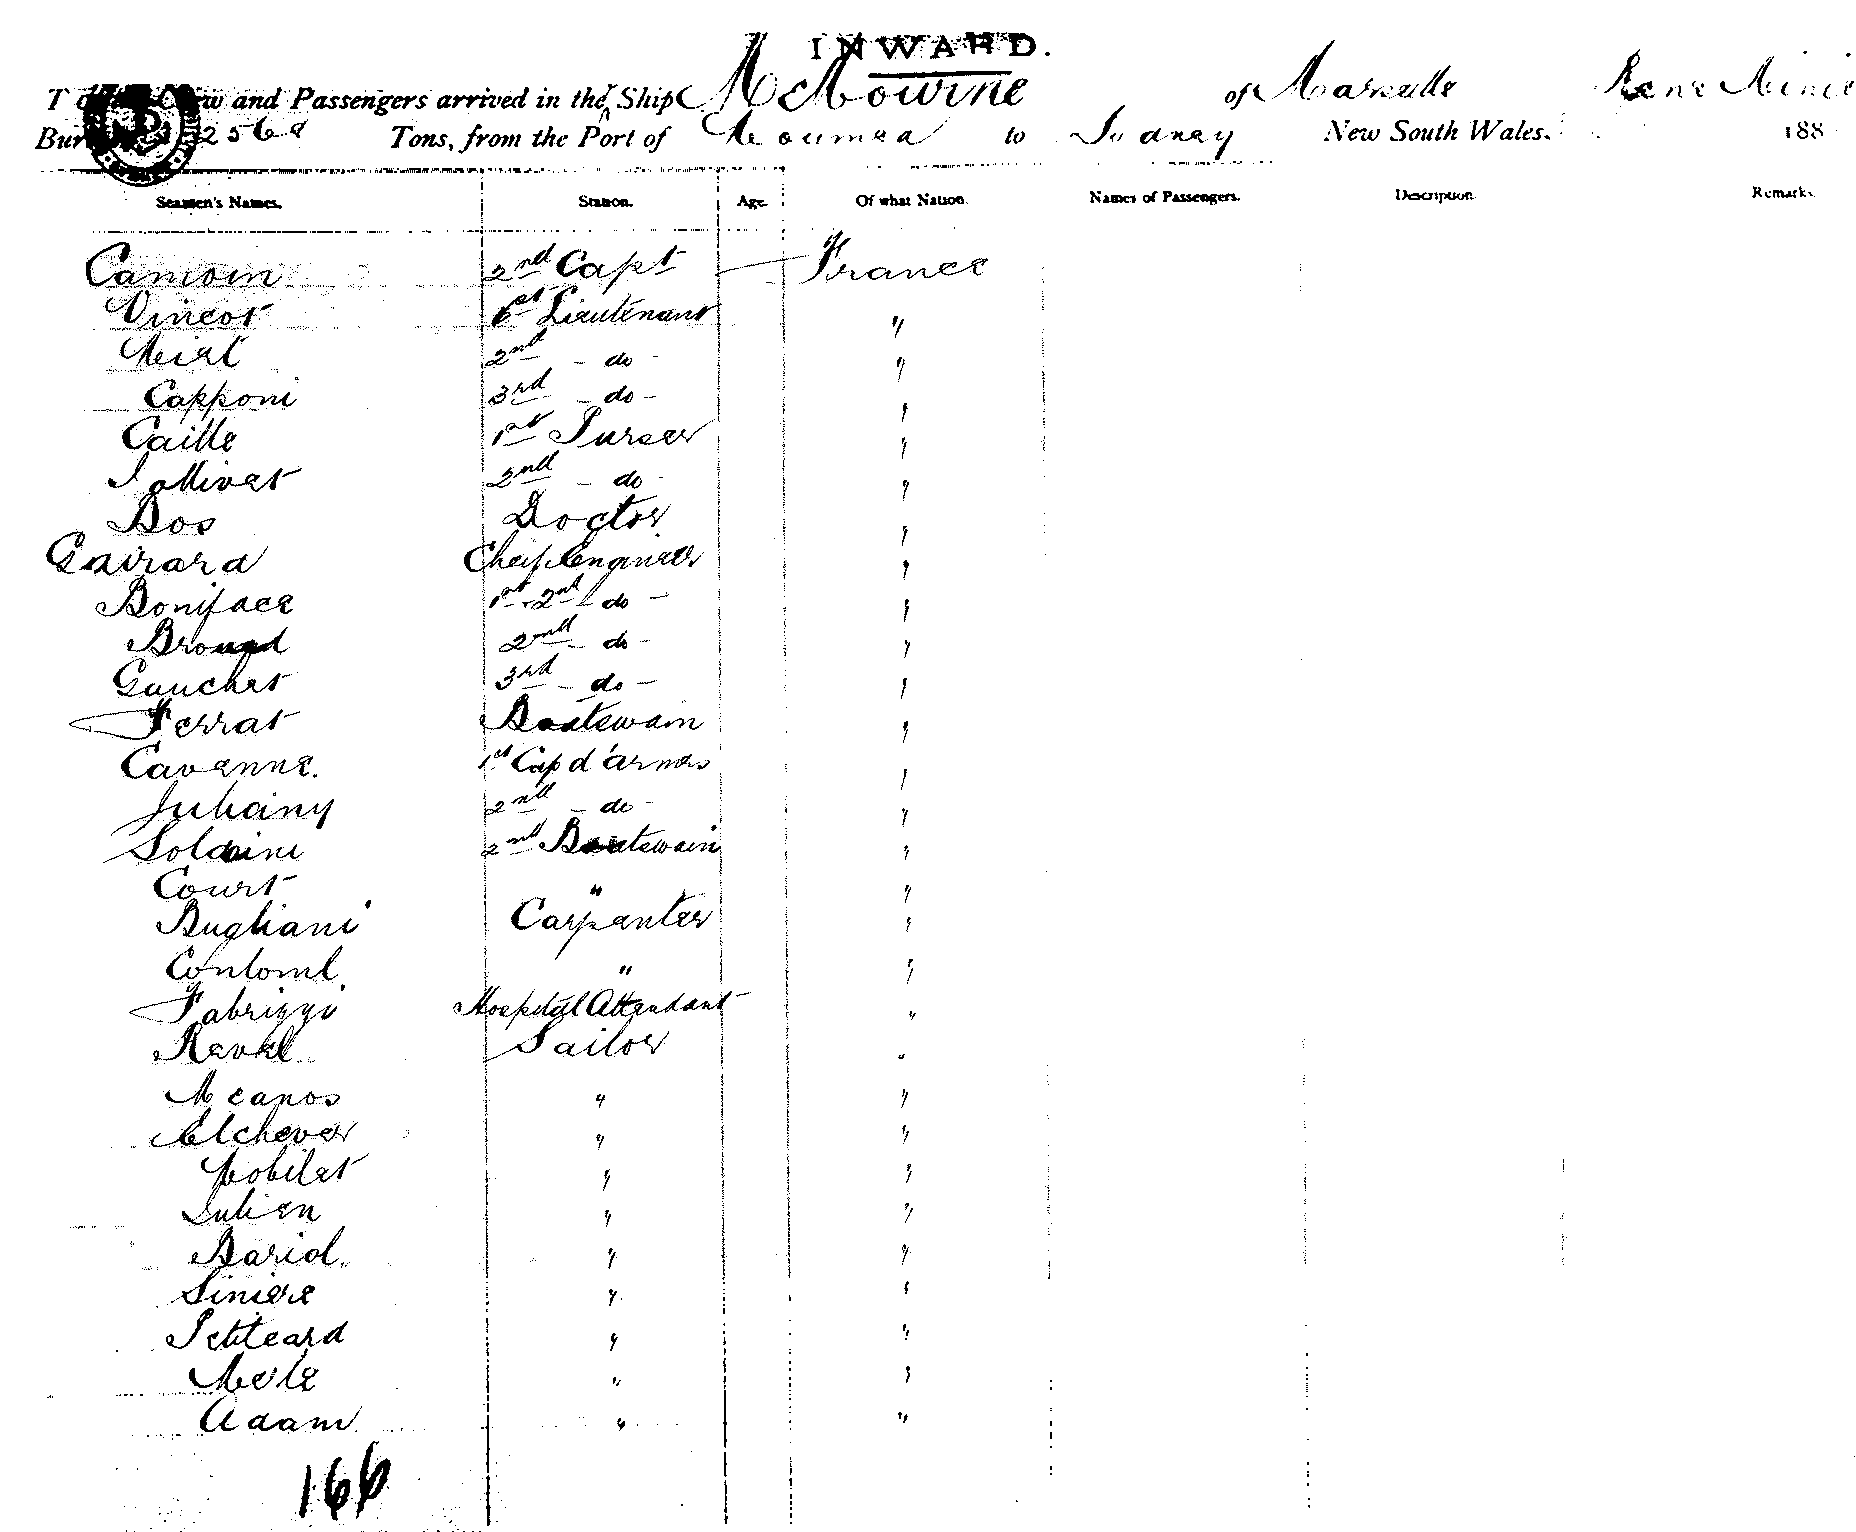 INWARD.
and Passengers arrived in the Ship of Marseille
Tons, from the Port of Noumea to Sydney New South Wales. 188
Seamen's Names. Station. Age. Of what Nation. Names of Passengers. Description. Remarks.
Camoin 2nd Capt — France
Vincot 1st Lieutenant "
2nd - do - "
Capponi 3rd - do - "
Caille 1st Purser "
Jollivet 2nd - do - "
Bos Doctor "
Gairard Cheif Engineer "
Boniface 1st - 2nd - do - "
2nd - do - "
Gauchet 3rd - do - "
Ferrat Boatswain "
Cavenne. 1st Cap d'armes "
Juliany 2nd - do - "
2nd Boatswain "
Court " "
Bugliani Carpenter "
" "
Fabrizzi Hospital Attendant "
Sailor "
Meanos " "
" "
Nobilet " "
Julien " "
Bariol " "
Siniere " "
Petiteard " "
Merle " "
Adam " "
166